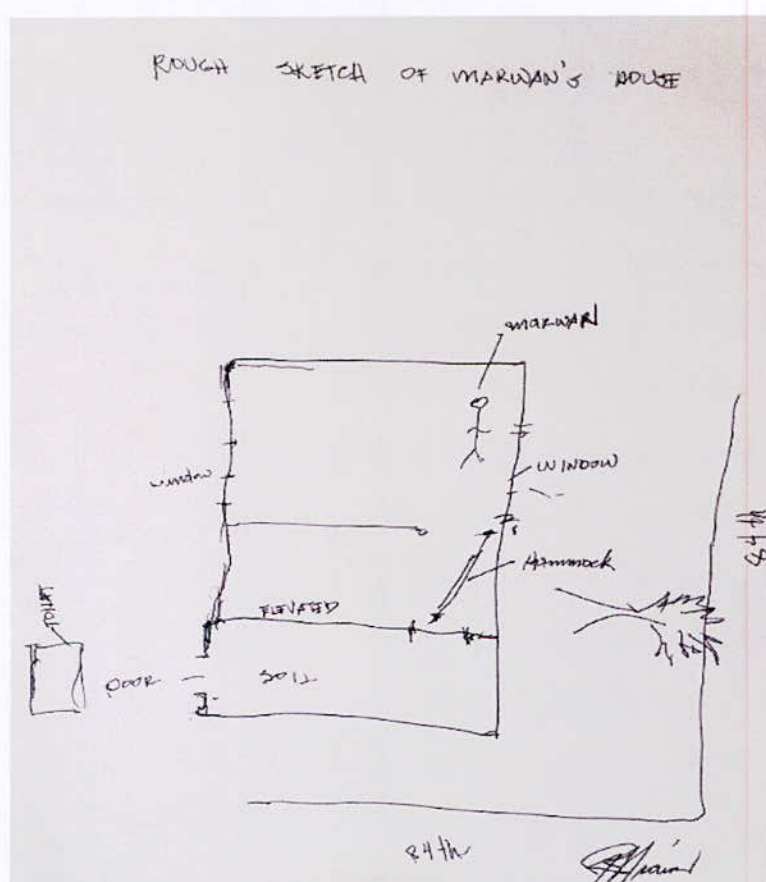 ROUGH SKETCH OF MARWAN'S HOUSE
MARWAN
WINDOW
window
Hammock
84th
ELEVATED
TOILET
DOOR
SOIL
84th